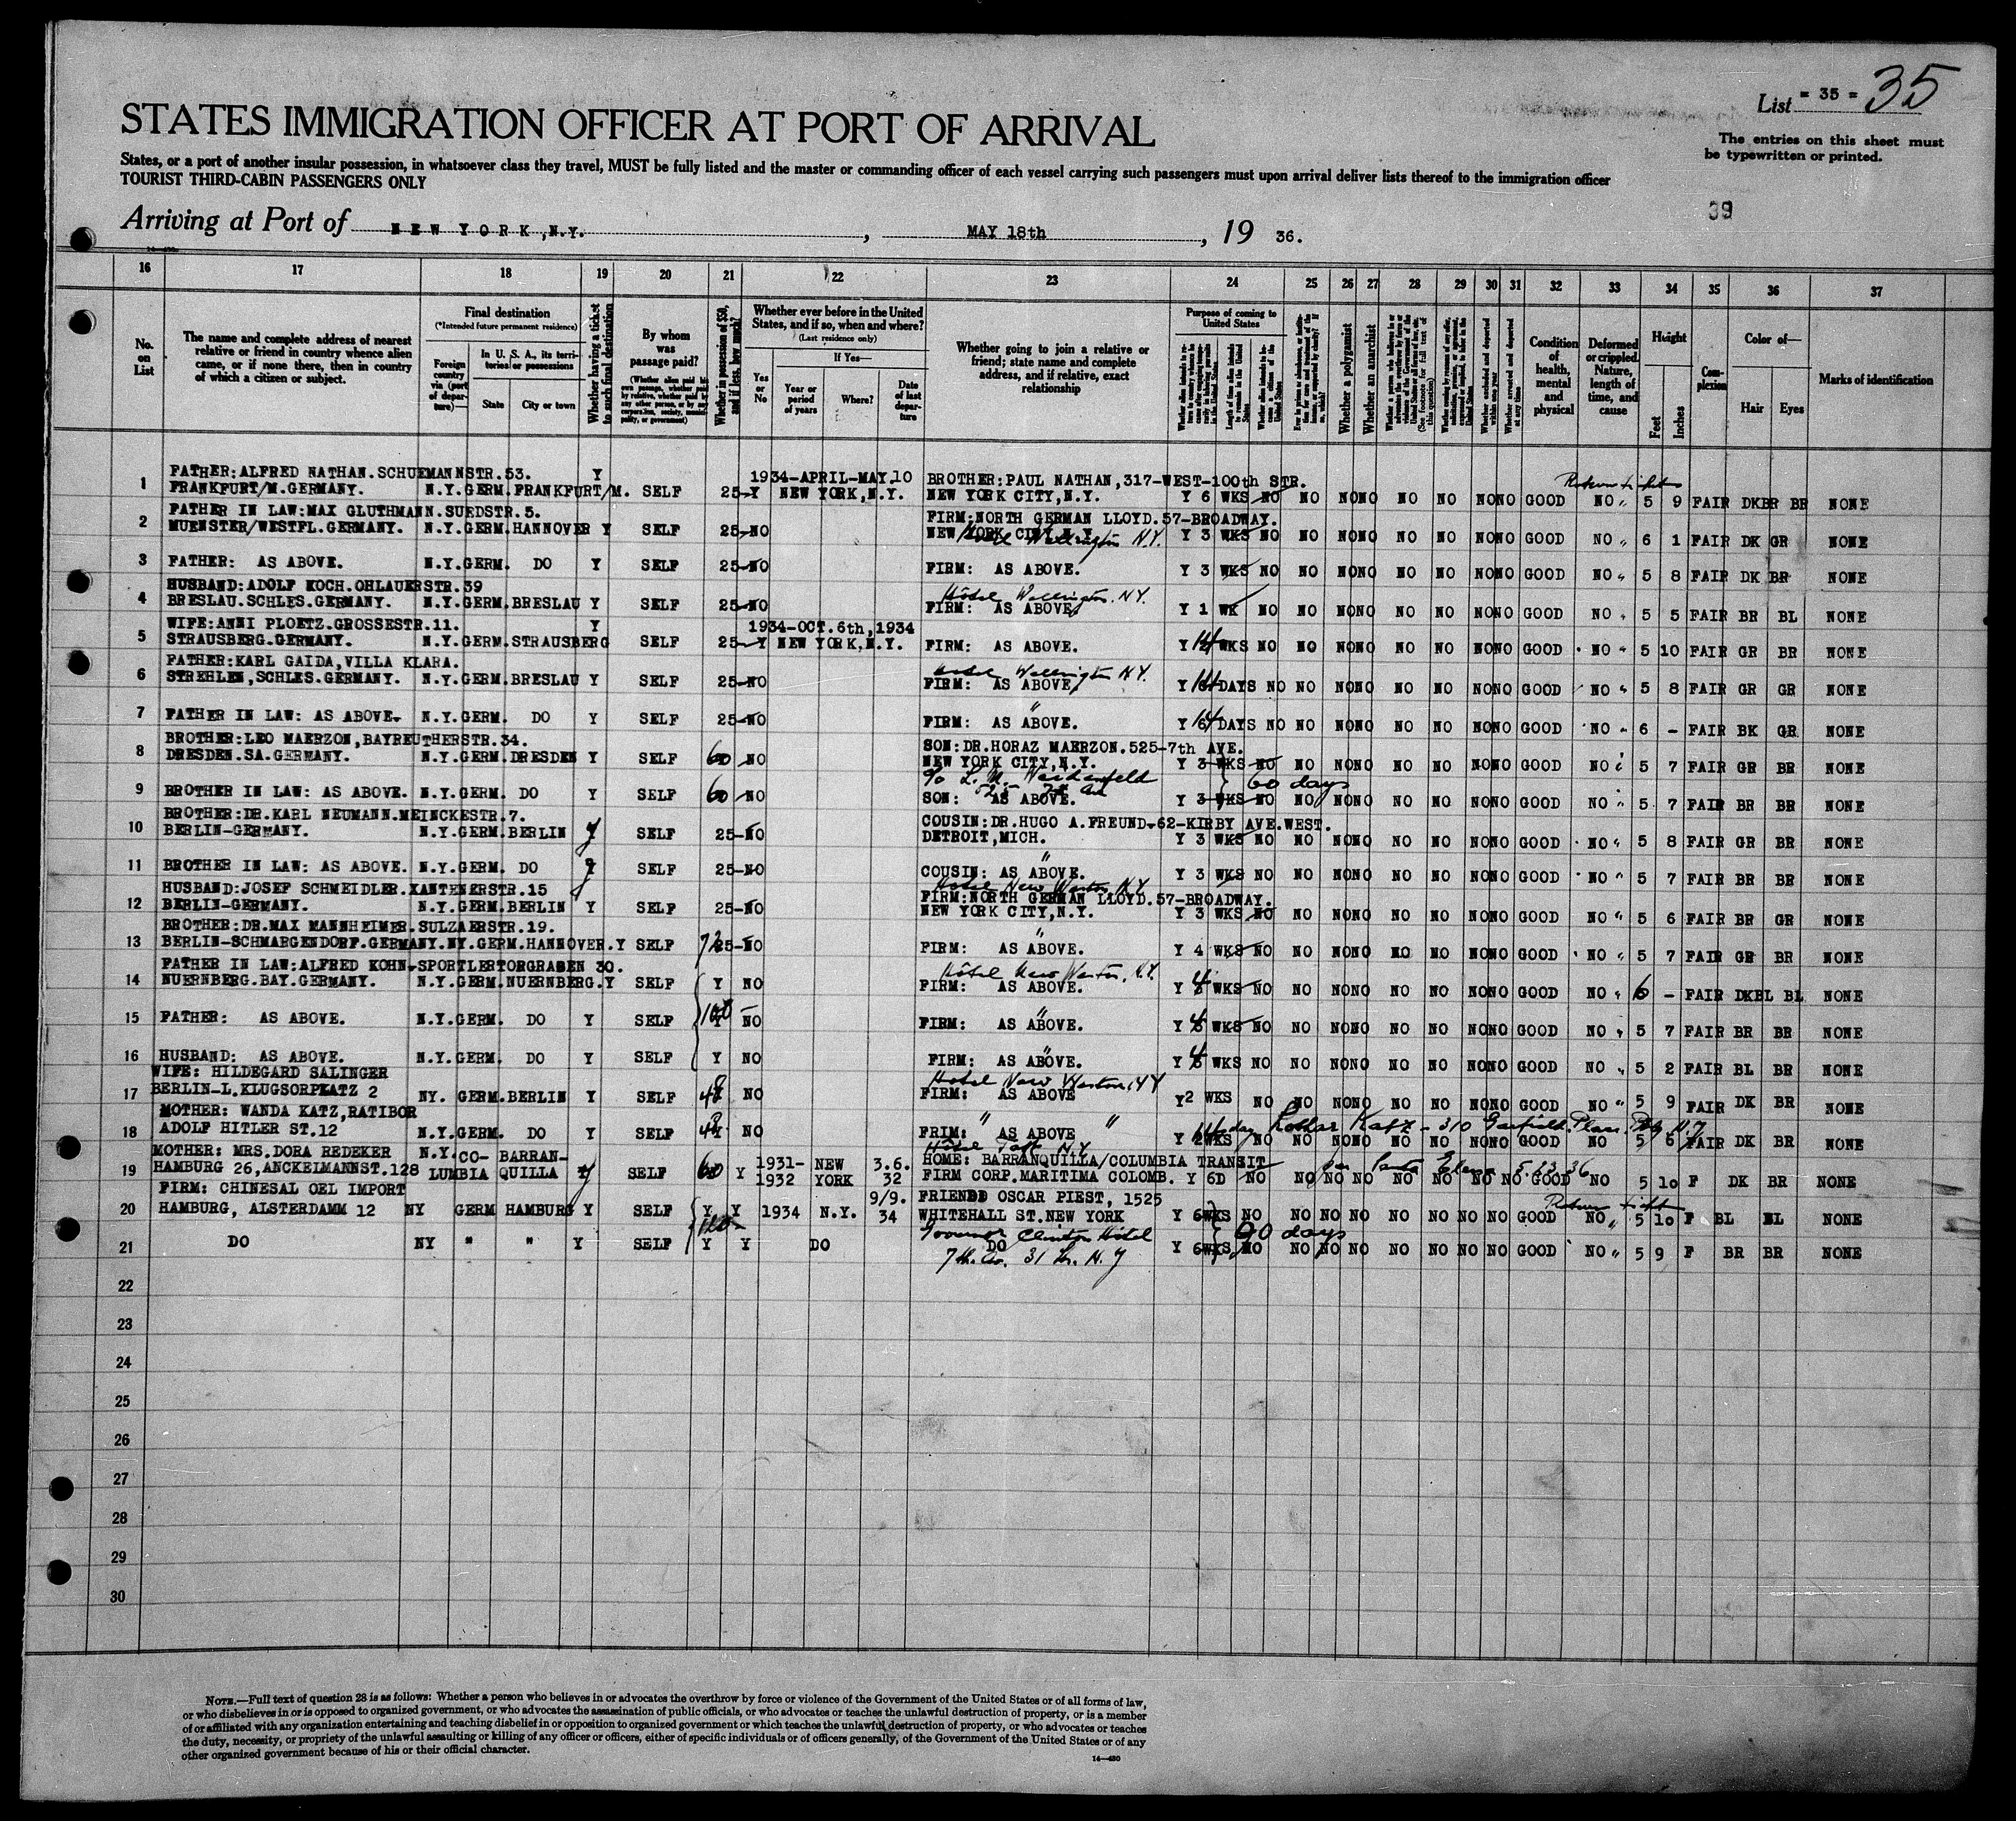 List = 35 = 35
STATES IMMIGRATION OFFICER AT PORT OF ARRIVAL
The entries on this sheet must
be typewritten or printed.
States, or a port of another insular possession, in whatsoever class they travel, MUST be fully listed and the master or commanding officer of each vessel carrying such passengers must upon arrival deliver lists thereof to the immigration officer
TOURIST THIRD-CABIN PASSENGERS ONLY
39
Arriving at Port of NEW YORK, N.Y. , MAY 18th , 19 36.
16 17 18 19 20 21 22 23 24 25 26 27 28 29 30 31 32 33 34 35 36 37
No. on List
The name and complete address of nearest relative or friend in country whence alien came, or if none there, then in country of which a citizen or subject.
Final destination
(*Intended future permanent residence)
Foreign country via (port of departure)—
In U. S. A., its territories or possessions
State City or town
Whether having a ticket to such final destination
By whom was passage paid?
(Whether alien paid his own passage, whether paid by relative, whether paid by any other person, or by any corporation, society, municipality, or government)
Whether in possession of $50, and if less, how much?
Whether ever before in the United States, and if so, when and where?
(Last residence only)
Yes or No
If Yes—
Year or period of years
Where?
Date of last departure
Whether going to join a relative or friend; state name and complete address, and if relative, exact relationship
Purpose of coming to United States
Length of time alien intends to remain in the United States
Whether alien intends to become a citizen of the United States
Whether a polygamist
Whether an anarchist
(See footnote for full text of this question)
Whether arrested and deported at any time
Condition of health, mental and physical
Deformed or crippled. Nature, length of time, and cause
Height
Feet Inches
Complexion
Color of—
Hair Eyes
Marks of identification
Return ticket
1 FATHER:ALFRED NATHAN.SCHUEMANNSTR.53. Y 1934-APRIL-MAY.10 BROTHER:PAUL NATHAN,317-WEST-100th STR.
FRANKFURT/M.GERMANY. N.Y.GERM.FRANKFURT/M. SELF 25-Y NEW YORK,N.Y. NEW YORK CITY,N.Y. Y 6 WKS NO NO NONO NO NO NONO GOOD NO " 5 9 FAIR DKBR BR NONE
2 FATHER IN LAW:MAX GLUTHMANN.SUEDSTR.5. FIRM:NORTH GERMAN LLOYD.57-BROADWAY.
MUENSTER/WESTFL.GERMANY. N.Y.GERM.HANNOVER Y SELF 25-NO NEW YORK CITY,N.Y. Y 3 WKS NO NO NONO NO NO NONO GOOD NO " 6 1 FAIR DK GR NONE
Hotel Wellington N.Y.
3 FATHER: AS ABOVE. N.Y.GERM. DO Y SELF 25-NO FIRM: AS ABOVE. Y 3 WKS NO NO NONO NO NO NONO GOOD NO " 5 8 FAIR DK BR NONE
4 HUSBAND:ADOLF KOCH.OHLAUERSTR.39 Hôtel Wellington. N.Y.
BRESLAU.SCHLES.GERMANY. N.Y.GERM.BRESLAU Y SELF 25-NO FIRM: AS ABOVE, Y 1 WK NO NO NONO NO NO NONO GOOD NO " 5 5 FAIR BR BL NONE
5 WIFE:ANNI PLOETZ.GROSSESTR.11. Y 1934-OCT.6th,1934
STRAUSBERG.GERMANY. N.Y.GERM.STRAUSBERG SELF 25-Y NEW YORK,N.Y. FIRM: AS ABOVE. Y WKS NO NO NONO NO NO NONO GOOD NO " 5 10 FAIR GR BR NONE
6 FATHER:KARL GAIDA,VILLA KLARA. Hotel Wellington N.Y.
STREHLEN,SCHLES.GERMANY. N.Y.GERM.BRESLAU Y SELF 25-NO FIRM: AS ABOVE, Y 14 DAYS NO NO NONO NO NO NONO GOOD NO " 5 8 FAIR GR GR NONE
7 FATHER IN LAW: AS ABOVE. N.Y.GERM. DO Y SELF 25-NO FIRM: AS ABOVE. Y 14 DAYS NO NO NONO NO NO NONO GOOD NO " 6 - FAIR BK GR NONE
8 BROTHER:LEO MAERZON,BAYREUTHERSTR.34. SON:DR.HORAZ MAERZON.525-7th AVE.
DRESDEN.SA.GERMANY. N.Y.GERM.DRESDEN Y SELF 60 NO NEW YORK CITY,N.Y. Y 3 WKS NO NO NONO NO NO NONO GOOD NO " 5 7 FAIR GR BR NONE
60 days
9 BROTHER IN LAW: AS ABOVE. N.Y.GERM. DO Y SELF 60 NO SON: AS ABOVE. Y 3 WKS NO NO NONO NO NO NONO GOOD NO " 5 7 FAIR BR BR NONE
10 BROTHER:DR.KARL NEUMANN.MEINCKESTR.7. COUSIN:DR.HUGO A.FREUND-62-KIRBY AVE.WEST.
BERLIN-GERMANY. N.Y.GERM.BERLIN Y SELF 25-NO DETROIT,MICH. Y 3 WKS NO NO NONO NO NO NONO GOOD NO " 5 8 FAIR GR BR NONE
11 BROTHER IN LAW: AS ABOVE. N.Y.GERM. DO Y SELF 25-NO COUSIN: AS ABOVE. Y 3 WKS NO NO NONO NO NO NONO GOOD NO " 5 7 FAIR BR BR NONE
Hotel New Weston N.Y.
12 HUSBAND:JOSEF SCHMEIDLER.XANTENERSTR.15 FIRM:NORTH GERMAN LLOYD.57-BROADWAY.
BERLIN-GERMANY. N.Y.GERM.BERLIN Y SELF 25-NO NEW YORK CITY,N.Y. Y 3 WKS NO NO NONO NO NO NONO GOOD NO " 5 6 FAIR BR GR NONE
13 BROTHER:DR.MAX MANNHEIMER.SULZAERSTR.19.
BERLIN-SCHMARGENDORF.GERMANY.NY.GERM.HANNOVER.Y SELF 25-NO FIRM: AS ABOVE. Y 4 WKS NO NO NONO NO NO NONO GOOD NO " 5 7 FAIR GR BR NONE
14 FATHER IN LAW:ALFRED KOHN-SPORTLERTORGRABEN 30. Hôtel New Weston, N.Y.
NUERNBERG.BAY.GERMANY. N.Y.GERM.NUERNBERG.Y SELF Y NO FIRM: AS ABOVE. Y 4 WKS NO NO NONO NO NO NONO GOOD NO " 6 - FAIR DKBL BL NONE
15 FATHER: AS ABOVE. N.Y.GERM. DO Y SELF Y NO FIRM: AS ABOVE. Y 4 WKS NO NO NONO NO NO NONO GOOD NO " 5 7 FAIR BR BR NONE
16 HUSBAND: AS ABOVE. N.Y.GERM. DO Y SELF Y NO FIRM: AS ABOVE. Y 4 WKS NO NO NONO NO NO NONO GOOD NO " 5 2 FAIR BL BR NONE
17 WIFE: HILDEGARD SALINGER Hotel New Weston, NY
BERLIN-L.KLUGSORPLATZ 2 NY. GERM.BERLIN Y SELF NO FIRM: AS ABOVE Y2 WKS NO NO NONO NO NO NONO GOOD NO " 5 9 FAIR DK BR NONE
18 MOTHER: WANDA KATZ,RATIBOR Lothar Katz - 310 Garfield Place
ADOLF HITLER ST.12 N.Y.GERM. DO Y SELF NO FRIM: " AS ABOVE " Y WKS NO NO NONO NO NO NONO GOOD NO 5 6 FAIR DK BR NONE
Hotel Taft N.Y.
19 MOTHER: MRS.DORA REDEKER N.Y.CO- BARRAN- 1931- NEW 3.6. HOME: BARRANQUILLA/COLUMBIA TRANSIT per Santa Elena 5.23.36
HAMBURG 26,ANCKELMANNST.128 LUMBIA QUILLA Y SELF 60 Y 1932 YORK 32 FIRM CORP.MARITIMA COLOMB. Y 6D NO NO NO NO NO NO NO NO GOOD NO 5 10 F DK BR NONE
Return ticket
20 FIRM: CHINESAL OEL IMPORT 9/9. FRIEND OSCAR PIEST, 1525
HAMBURG, ALSTERDAMM 12 NY GERM HAMBURG Y SELF Y Y 1934 N.Y. 34 WHITEHALL ST.NEW YORK Y 6WKS NO NO NO NO NO NO NO NO GOOD NO " 5 10 F BL BL NONE
Governor Clinton Hotel
21 DO NY " " Y SELF Y Y DO DO Y 6WKS NO NO NO NO NO NO NO NO GOOD NO " 5 9 F BR BR NONE
7th Av. 31 St. N.Y
22
23
24
25
26
27
28
29
30
NOTE.—Full text of question 28 is as follows: Whether a person who believes in or advocates the overthrow by force or violence of the Government of the United States or of all forms of law,
or who disbelieves in or is opposed to organized government, or who advocates the assassination of public officials, or who advocates or teaches the unlawful destruction of property, or is a member
of or affiliated with any organization entertaining and teaching disbelief in or opposition to organized government or which teaches the unlawful destruction of property, or who advocates or teaches
the duty, necessity, or propriety of the unlawful assaulting or killing of any officer or officers, either of specific individuals or of officers generally, of the Government of the United States or of any
other organized government because of his or their official character.
14—430